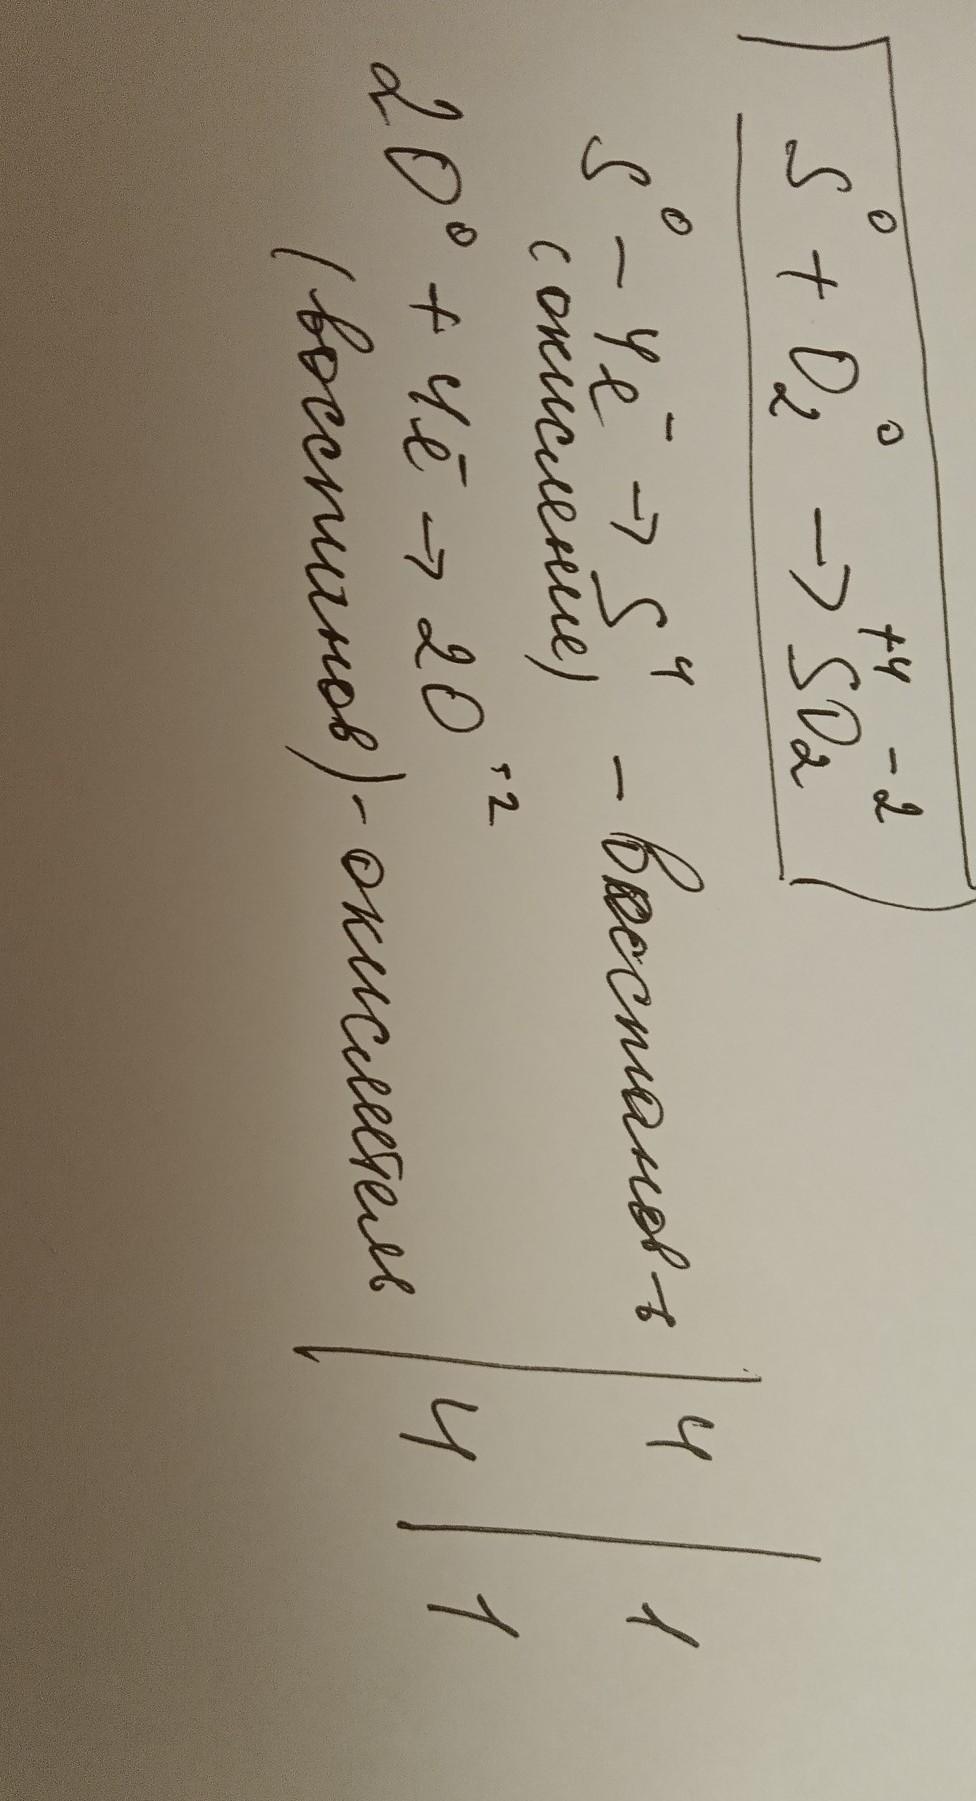 S⁰ + O₂⁰ → S⁺⁴O₂⁻²
S⁰ - 4e⁻ → S⁴ - восстанов-ь | 4 | 1
(окисление)
2O⁰ + 4e⁻ → 2O⁺² | 4 | 1
(восстанов) - окислитель